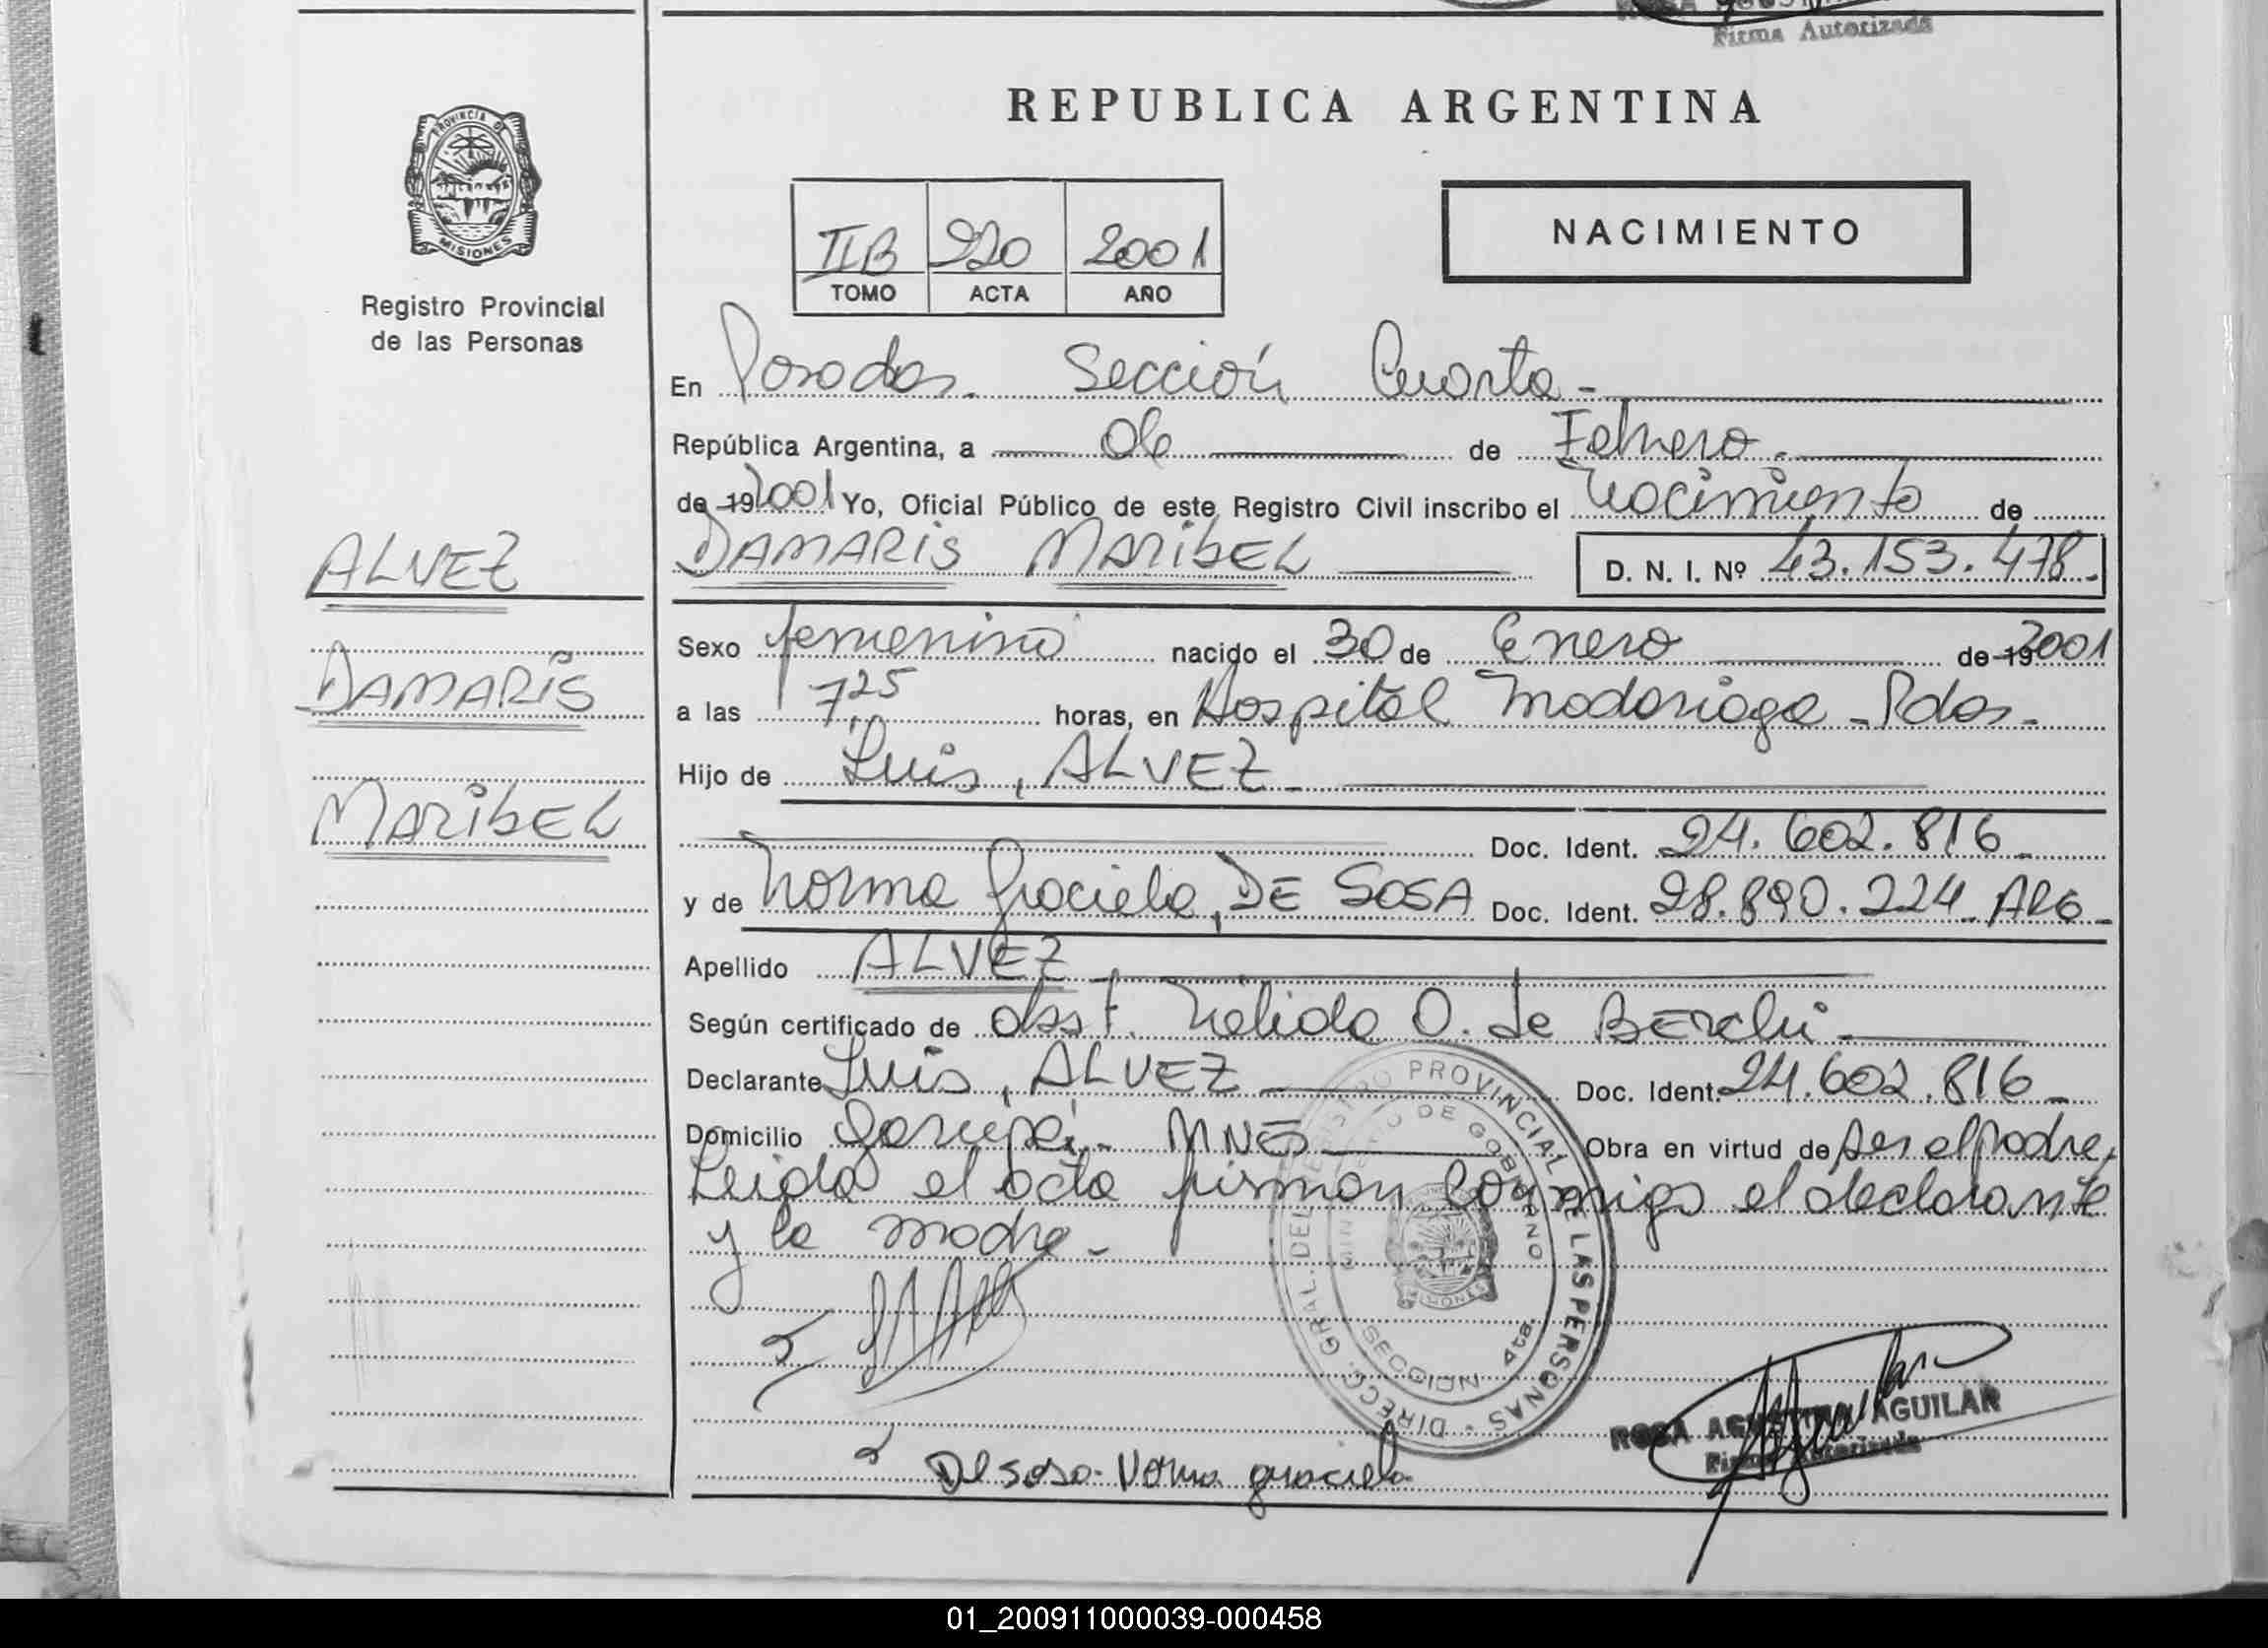 Firma Autorizada
REPUBLICA ARGENTINA
PROVINCIA DE
MISIONES
Registro Provincial
de las Personas
NACIMIENTO
IIB 920 2001
TOMO ACTA AÑO
En Posadas. Sección Cuarta -
República Argentina, a 06 de Febrero.
de 19 2001 Yo, Oficial Público de este Registro Civil inscribo el Nacimiento de
DAMARIS MARIBEL D. N. I. Nº 43.153.478.
ALVEZ
DAMARIS
MARIBEL
Sexo femenino nacido el 30 de Enero de 19 2001
a las 7,25 horas, en Hospital Madariaga - Pdas.
Hijo de Luis, ALVEZ
Doc. Ident. 24.602.816
y de Norma Graciela, DE SOSA Doc. Ident. 28.890.224 ARG
Apellido ALVEZ
Según certificado de obst. Nélida O. de
Declarante Luis, ALVEZ Doc. Ident. 24.602.816
Domicilio Garupá - MNES Obra en virtud de ser el padre,
Leida el acta firman conmigo el declarante
y la madre -
DIRECC. GRAL. DEL REGISTRO PROVINCIAL DE LAS PERSONAS
MINISTERIO DE GOBIERNO
MISIONES
SECCION 4ta.
ROSA AGUSTINA AGUILAR
Firma Autorizada
De sosa Norma graciela
01_200911000039-000458